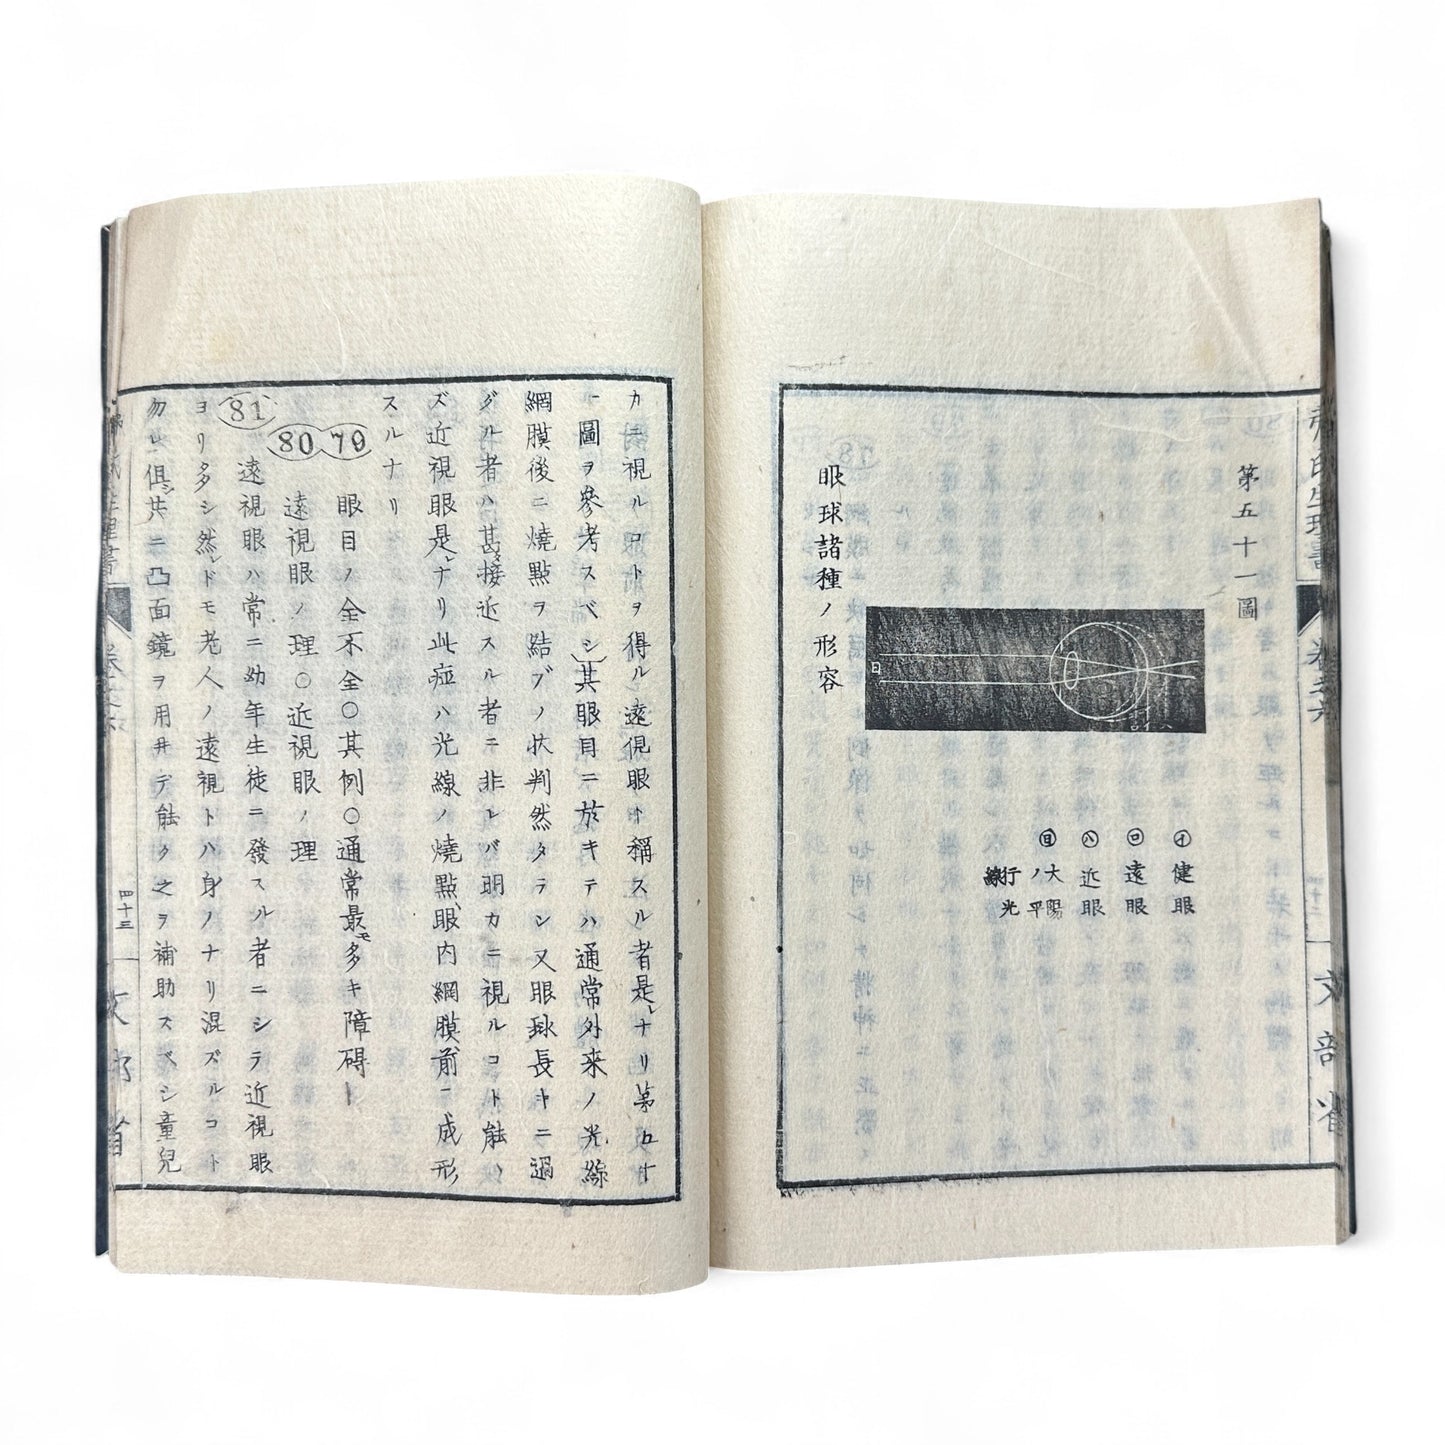 第五十一圖
眼球諸種ノ形容
日
㋑健眼
㋺遠眼
㋩近眼
㊐大陽
ノ平
行光
線
文部省
カニ視ルコトヲ得ル遠視眼ト稱スル者是レナリ第口十
一圖ヲ參考スベシ其眼目ニ於キテハ通常外来ノ光線
網膜後ニ燒點ヲ結ブノ状判然タラン又眼球長キニ過
グル者ハ甚タ接近スル者ニ非レバ明カニ視ルコト能ハ
ズ近視眼是レナリ此症ハ光線ノ燒點、眼内網膜前ニ成形
スルナリ
79 眼目ノ全不全〇其例〇通常最モ多キ障碍ー
80 遠視眼ノ理〇近視眼ノ理
81 遠視眼ハ常ニ幼年生徒ニ發スル者ニシテ近視眼
ヨリ多シ然レドモ老人ノ遠視トハ身ノナリ混ズルコト
勿レ俱共ニ凸面鏡ヲ用井デ能ク之ヲ補助スベシ童兒
理書
卷之六
四十三
文部省